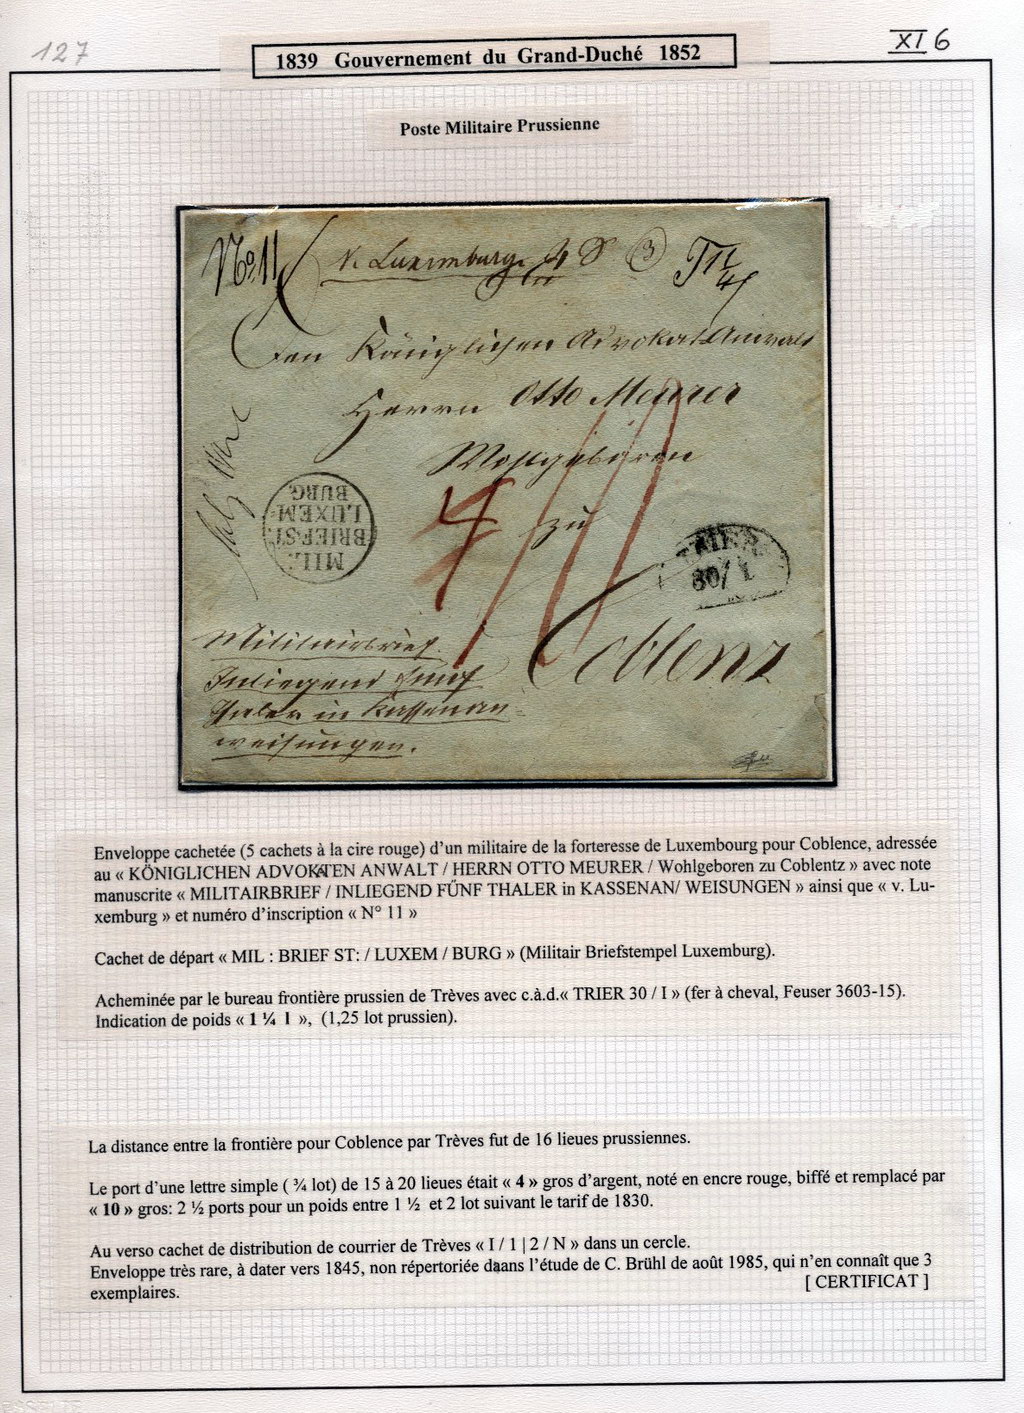 127
XI 6
1839 Gouvernement du Grand-Duché 1852
Poste Militaire Prussienne
No. 11
v. Luxemburg
3
Den Königlichen Advokat Anwalt
Herrn Otto Meurer
Wohlgeboren
zu
Coblenz
4
10
MIL:
BRIEFST:
LUXEM-
BURG
TRIER
30/1
Militairbrief.
Inliegend fünf
Thaler in Kassenan
weisungen.
Enveloppe cachetée (5 cachets à la cire rouge) d'un militaire de la forteresse de Luxembourg pour Coblence, adressée
au « KÖNIGLICHEN ADVOKTEN ANWALT / HERRN OTTO MEURER / Wohlgeboren zu Coblentz » avec note
manuscrite « MILITAIRBRIEF / INLIEGEND FŰNF THALER in KASSENAN/ WEISUNGEN » ainsi que « v. Lu-
xemburg » et numéro d'inscription « N° 11 »
Cachet de départ « MIL : BRIEF ST: / LUXEM / BURG » (Militair Briefstempel Luxemburg).
Acheminée par le bureau frontière prussien de Trèves avec c.à.d.« TRIER 30 / I » (fer à cheval, Feuser 3603-15).
Indication de poids « 1 ¼ l », (1,25 lot prussien).
La distance entre la frontière pour Coblence par Trèves fut de 16 lieues prussiennes.
Le port d'une lettre simple ( ¾ lot) de 15 à 20 lieues était « 4 » gros d'argent, noté en encre rouge, biffé et remplacé par
« 10 » gros: 2 ½ ports pour un poids entre 1 ½ et 2 lot suivant le tarif de 1830.
Au verso cachet de distribution de courrier de Trèves « I / 1 | 2 / N » dans un cercle.
Enveloppe très rare, à dater vers 1845, non répertoriée daans l'étude de C. Brühl de août 1985, qui n'en connaît que 3
exemplaires.
[ CERTIFICAT ]